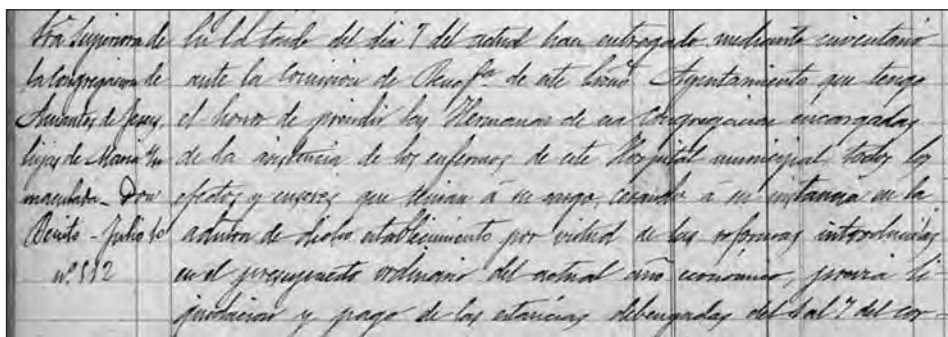 Sra Superiora de
la Congregacion de
Amantes de Jesus,
hijas de Maria In
maculada - Don
Benito - Julio 10
nº 512
En la tarde del dia 7 del actual han entregado mediante inventario
ante la Comision de Benefª de este Excmo Ayuntamiento que tengo
el honor de presidir las Hermanas de esa Congregacion encargadas
de la asistencia de los enfermos de este Hospital municipal, todos los
efectos y enseres que tenian á su cargo, cesando á su instancia en la
de dicho establecimiento por virtud de las reformas introducidas
en el presupuesto ordinario del actual año economico, previa li
quidacion y pago de las estancias debengadas del 1 al 7 del cor-